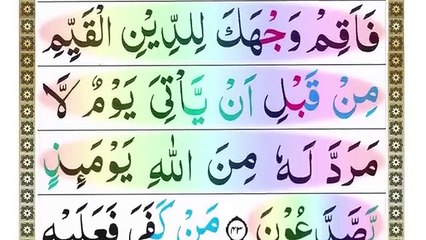 فَاَقِمْ وَجْهَكَ لِلدِّيْنِ الْقَيِّمِ
مِنْ قَبْلِ اَنْ يَّاْتِيَ يَوْمٌ لَّا
مَرَدَّ لَهٗ مِنَ اللّٰهِ يَوْمَىِٕذٍ
يَّصَّدَّعُوْنَ ﴿۴۳﴾ مَنْ كَفَرَ فَعَلَيْهِ